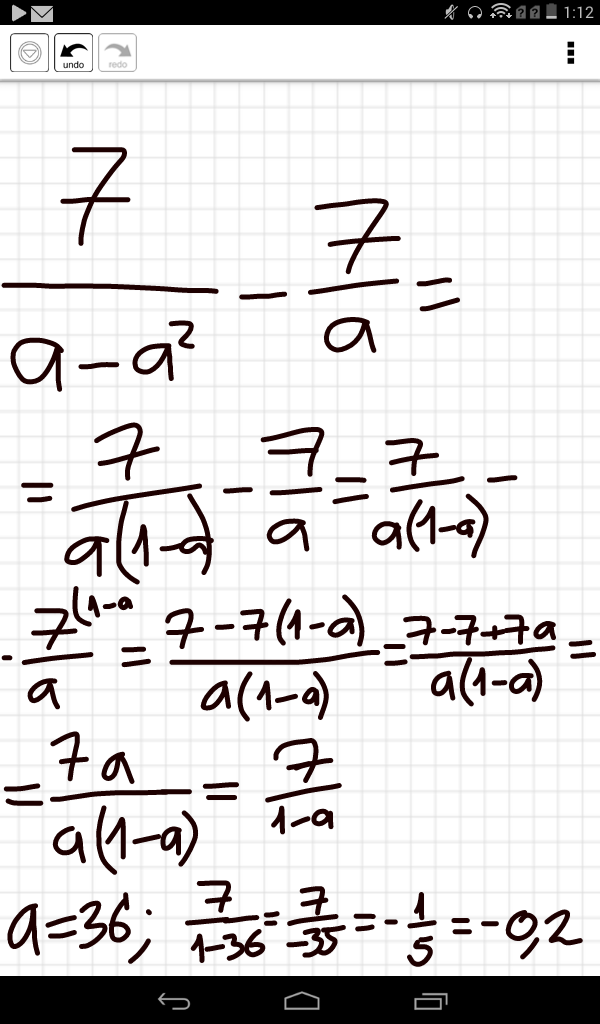 1:12
undo redo
7/(a-a²) - 7/a =
= 7/(a(1-a)) - 7/a = 7/(a(1-a)) -
- 7(1-a/a = (7-7(1-a))/(a(1-a)) = (7-7+7a)/(a(1-a)) =
= 7a/(a(1-a)) = 7/(1-a)
a=36; 7/(1-36) = 7/(-35) = -1/5 = -0,2